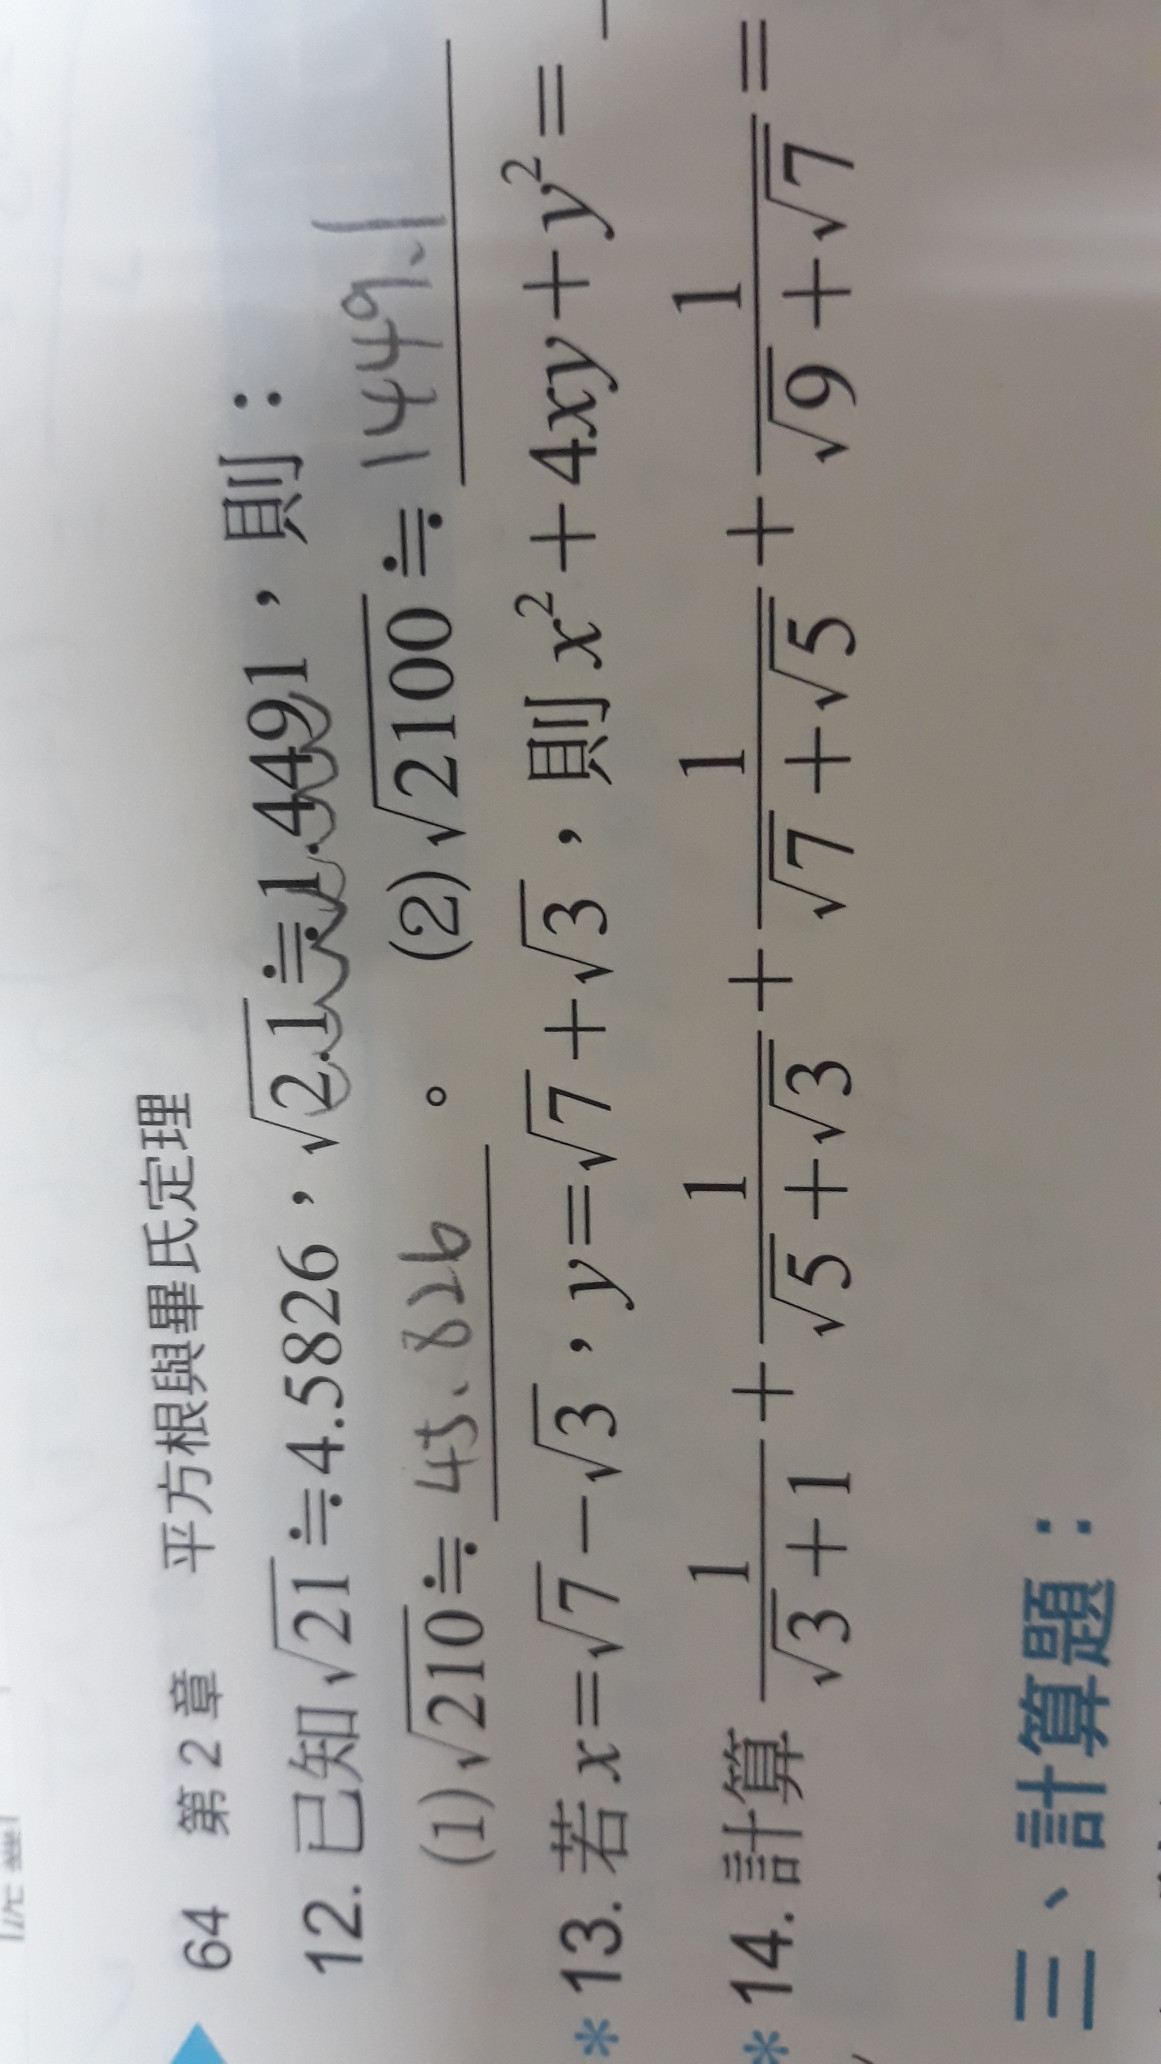 64 第2章 平方根與畢氏定理
12. 已知√21≒4.5826,√2.1≒1.4491,則:
(1)√210≒ 45.826 。 (2)√2100≒ 1449.1
* 13. 若x=√7−√3,y=√7+√3,則x²+4xy+y²=
* 14. 計算 1/(√3+1) + 1/(√5+√3) + 1/(√7+√5) + 1/(√9+√7) =
三、計算題: